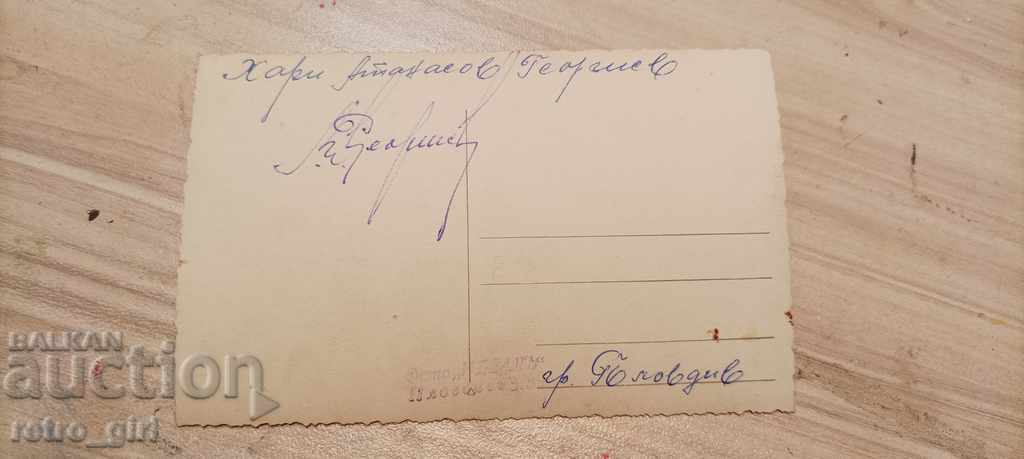 Хари Атанасов Георгиев
Георгиев
Фото
гр. Пловдив
BALKAN
auction
retro_girl